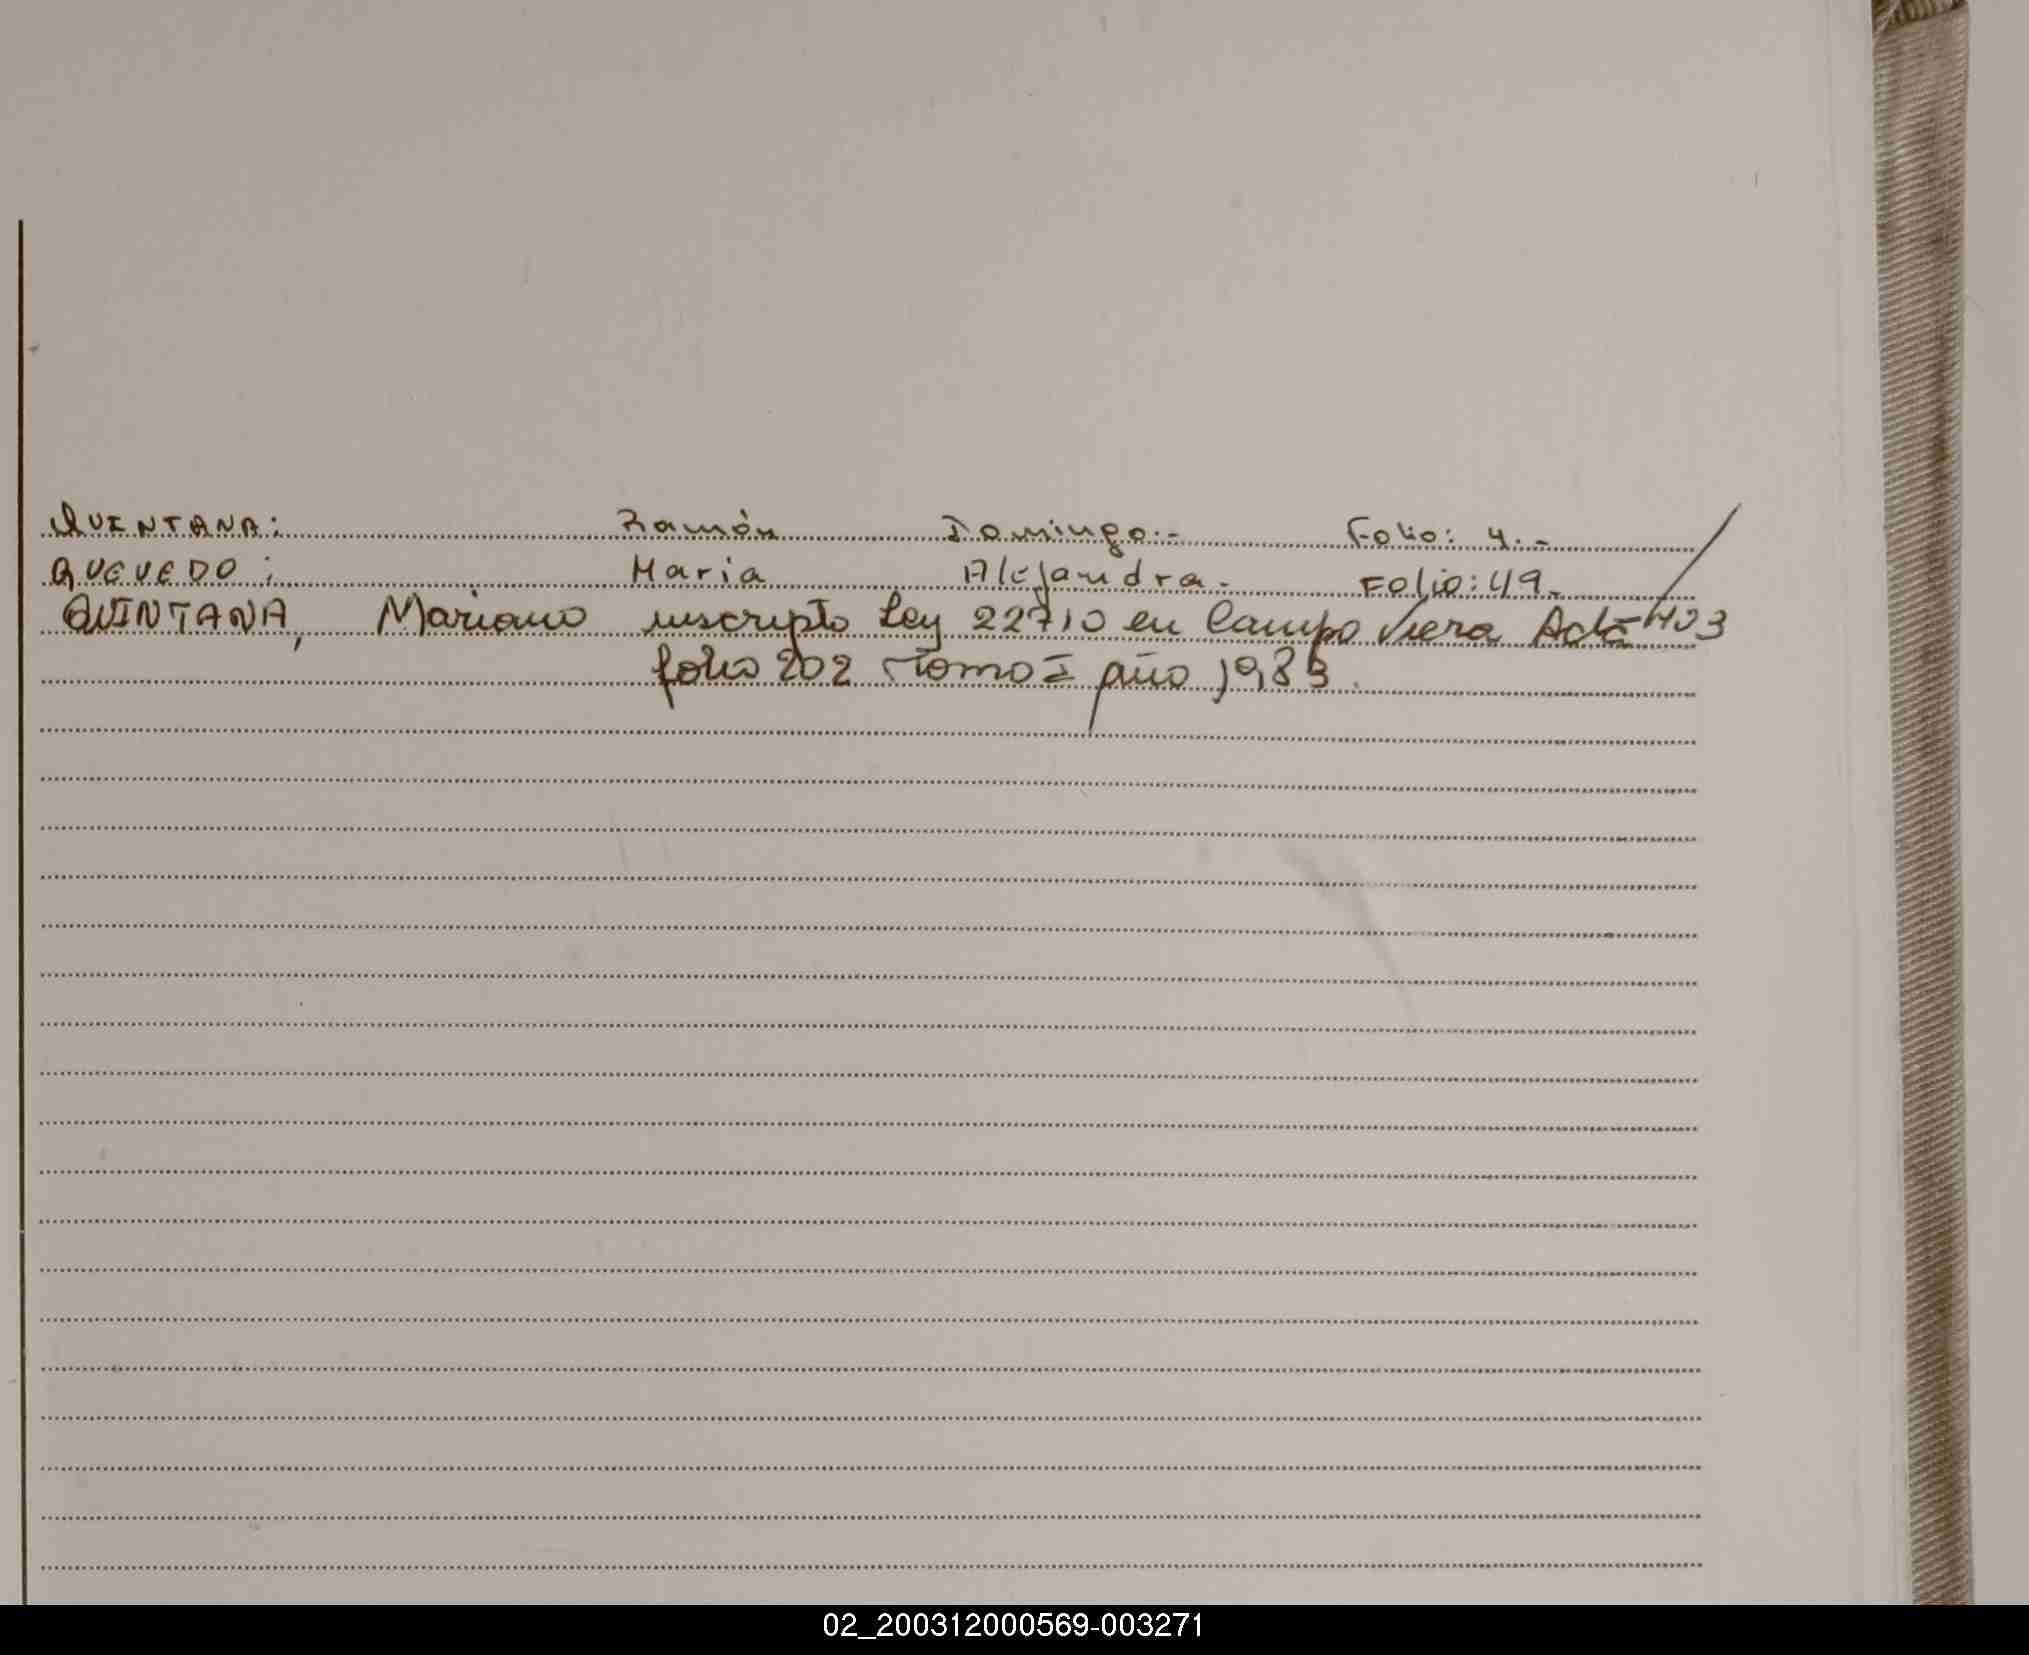 QUINTANA: Ramón Domingo.- Folio: 4.-
QUEVEDO: Maria Alejandra.- Folio: 49.-
QUINTANA, Mariano inscripto Ley 22710 en Campo Viera Acta 403
folio 202 Tomo I año 1983.
02_200312000569-003271